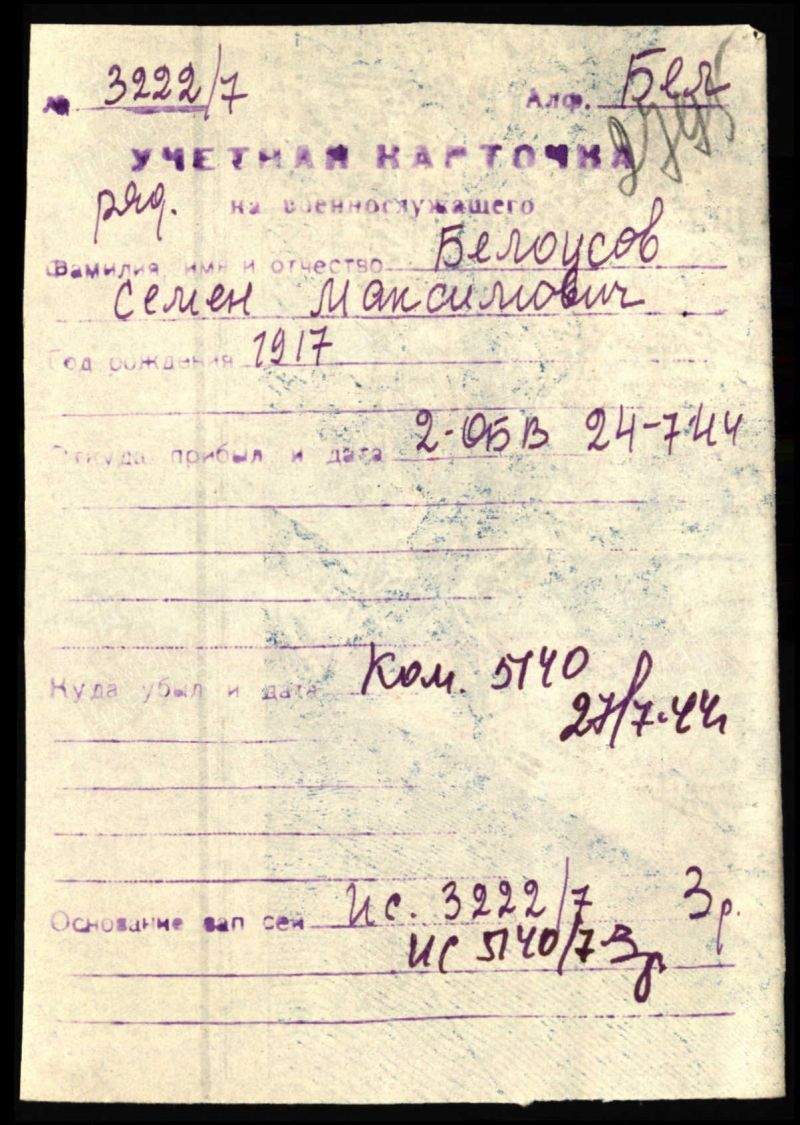 № 3222/7 Алф. Бел
УЧЕТНАЯ КАРТОЧКА
ряд. на военнослужащего
Фамилия, имя и отчество Белоусов
Семен Максимович
Год рождения 1917
Откуда прибыл и дата 2-ОБВ 24-7-44
Куда убыл и дата Ком. 5140
27/7.44г
Основание зап сей Ис. 3222/7 3р.
Ис 5140/7-3р.